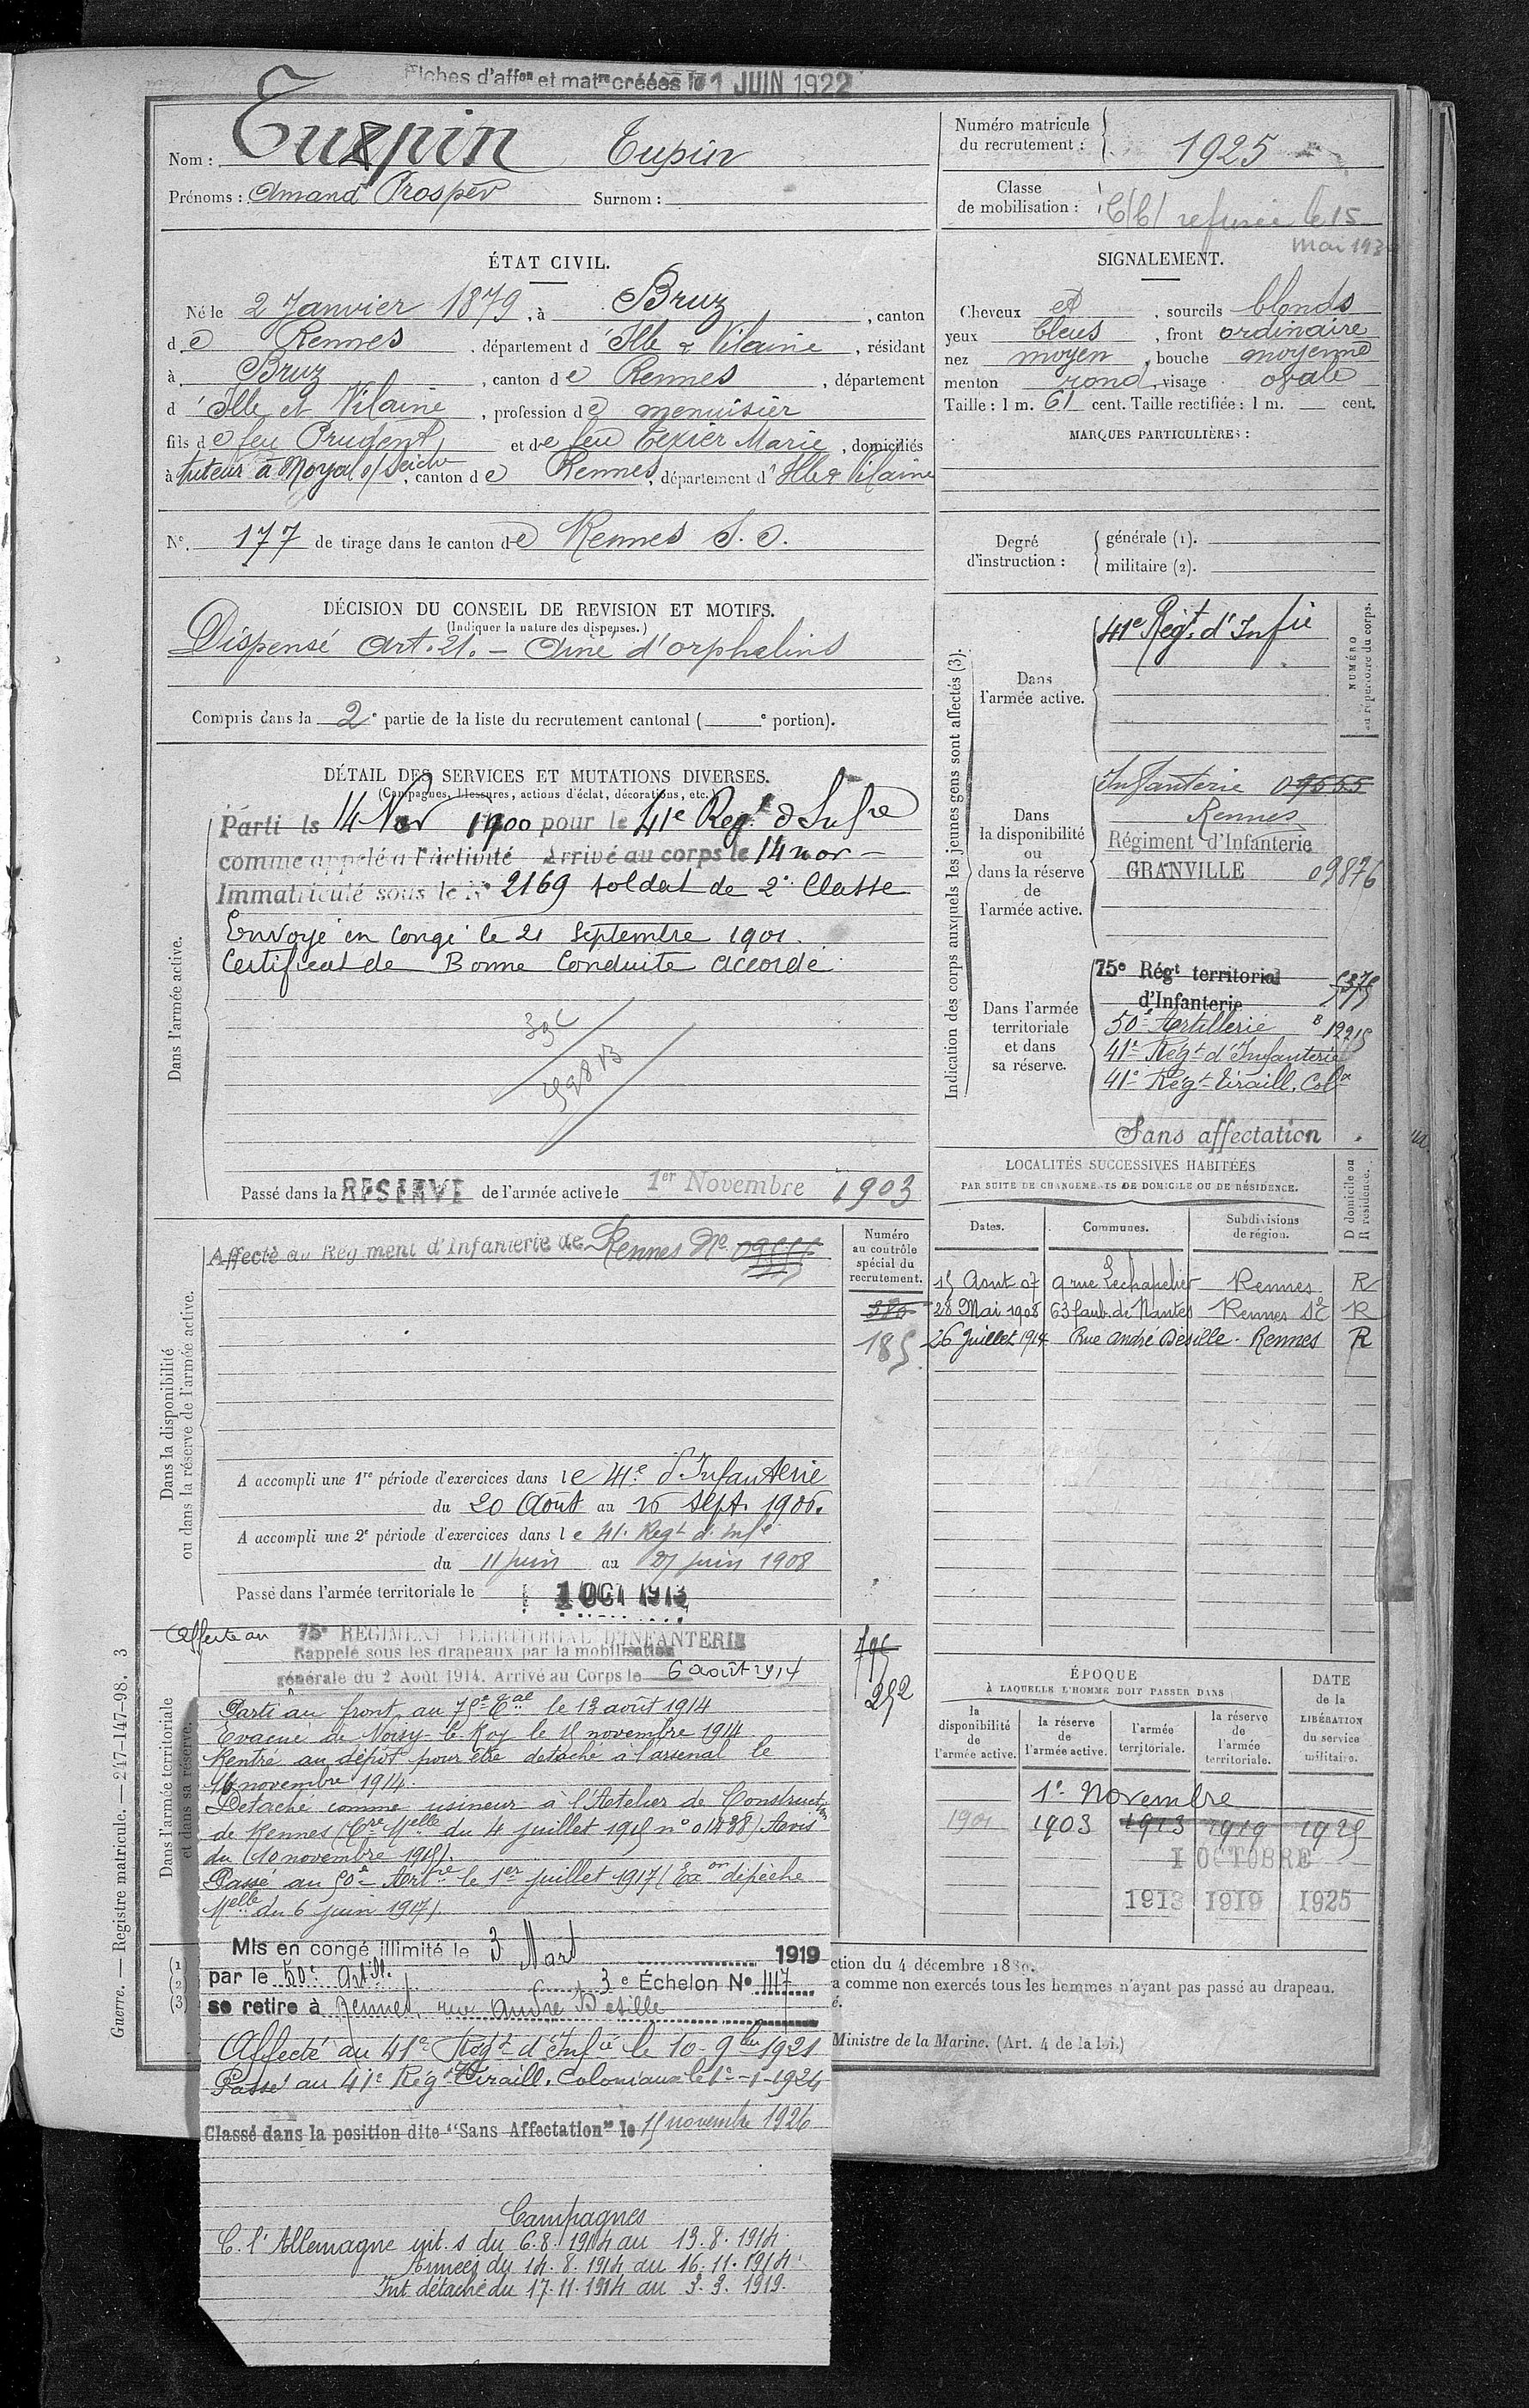 Fiches d'affon et matre créées le 1 JUIN 1922
Nom : Turpin Tupin
Prénoms : Amand Prosper Surnom :
Numéro matricule du recrutement : 1925
Classe de mobilisation : refusée le 15
mai 193
ÉTAT CIVIL.
Né le 2 Janvier 1879, à Bruz, canton
de Rennes, département d'Ille & Vilaine, résidant
à Bruz, canton de Rennes, département
d'Ille et Vilaine, profession de menuisier
fils de feu Prudent et de feu Texier Marie, domiciliés
à tuteur à Noyal s/ Seiche, canton de Rennes, département d'Ille & Vilaine
N°. 177 de tirage dans le canton de Rennes S. O.
SIGNALEMENT.
Cheveux et, sourcils blonds
yeux bleus, front ordinaire
nez moyen, bouche moyenne
menton rond, visage ovale
Taille : 1 m. 61 cent. Taille rectifiée : 1 m. cent.
MARQUES PARTICULIÈRES :
Degré d'instruction : générale (1).
militaire (2).
DÉCISION DU CONSEIL DE REVISION ET MOTIFS.
(Indiquer la nature des dispenses.)
Dispensé Art. 21. - Ainé d'orphelins
Compris dans la 2e partie de la liste du recrutement cantonal ( e portion).
DÉTAIL DES SERVICES ET MUTATIONS DIVERSES.
(Campagnes, blessures, actions d'éclat, décorations, etc.)
Dans l'armée active.
Parti le 14 Nov 1900 pour le 41e Regt d'Infre
comme appelé à l'activité Arrivé au corps le 14 nov -
Immatriculé sous le N° 2169 soldat de 2e Classe
Envoyé en congé le 21 Septembre 1901.
Certificat de Bonne Conduite accordé
Passé dans la RESERVE de l'armée active le 1er Novembre 1903
Indication des corps auxquels les jeunes gens sont affectés (3).
NUMÉRO au répertoire du corps.
Dans l'armée active.
41e Régt. d'Infie
Dans la disponibilité ou dans la réserve de l'armée active.
Infanterie 09555
Rennes
Régiment d'Infanterie
GRANVILLE 09876
Dans l'armée territoriale et dans sa réserve.
75e Régt territorial 5375
d'Infanterie
50e Artillerie B 12215
41e Régt d'Infanterie
41e Régt Tiraill. Colx
Sans affectation
LOCALITÉS SUCCESSIVES HABITÉES
PAR SUITE DE CHANGEMENTS DE DOMICILE OU DE RÉSIDENCE.
Dates. Communes. Subdivisions de région. D domicile ou R résidence.
15 Aout 07 9 rue Lechapelier Rennes R
28 Mai 1908 63 faub. de Nantes Rennes R
26 Juillet 1914 Rue André Désille - Rennes R
Dans la disponibilité
ou dans la réserve de l'armée active.
Affecté au Régiment d'Infanterie de Rennes No 09555
Numéro au contrôle spécial du recrutement.
380
185
A accompli une 1re période d'exercices dans le 41e d'Infanterie
du 20 Août au 16 Sept. 1906.
A accompli une 2e période d'exercices dans le 41. Regt d'Infie
du 11 juin au 27 juin 1908
Passé dans l'armée territoriale le 1 OCT 1913
Dans l'armée territoriale
et dans sa réserve.
Affecté au 75e REGIMENT TERRITORIAL D'INFANTERIE
Rappelé sous les drapeaux par la mobilisation
générale du 2 Août 1914. Arrivé au Corps le 6 août 1914
252
Parti au front au 75e Tal le 13 août 1914
Evacué de Noisy-le-Roy le 15 novembre 1914
Rentré au dépôt pour être détaché à l'arsenal le
16 novembre 1914.
Détaché comme usineur à l'Atelier de Construction
de Rennes (Cre Melle du 4 juillet 1915 n° 01438) Avis
du (10 novembre 1915).
Passé au 50e Artrie le 1er juillet 1917 (Exon dépêche
Melle du 6 juin 1917)
Mis en congé illimité le 3 Mars 1919
par le 50e Artil. 3e Échelon N° 1117
se retire à Rennes, rue André Désille
Affecté au 41e Régt d'Infie le 10-9bre 1921
Passé au 41e Régt Tiraill. Coloniaux le 1e-1-1924
Classé dans la position dite "Sans Affectation" le 15 novembre 1926
Campagnes
C. l'Allemagne int. s du 6.8.1914 au 13.8.1914.
Armées du 14.8.1914 au 16.11.1914.
Int détaché du 17.11.1914 au 3.3.1919.
ÉPOQUE
À LAQUELLE L'HOMME DOIT PASSER DANS
la disponibilité de l'armée active. la réserve de l'armée active. l'armée territoriale. la réserve de l'armée territoriale.
DATE de la LIBÉRATION du service militaire.
1er Novembre
1901 1903 1913 1919 1925
1 OCTOBRE
1913 1919 1925
(1)
(2)
(3)
ction du 4 décembre 1889.
a comme non exercés tous les hommes n'ayant pas passé au drapeau.
é.
Ministre de la Marine. (Art. 4 de la loi.)
Guerre. — Registre matricule. — 247-147-98. 3